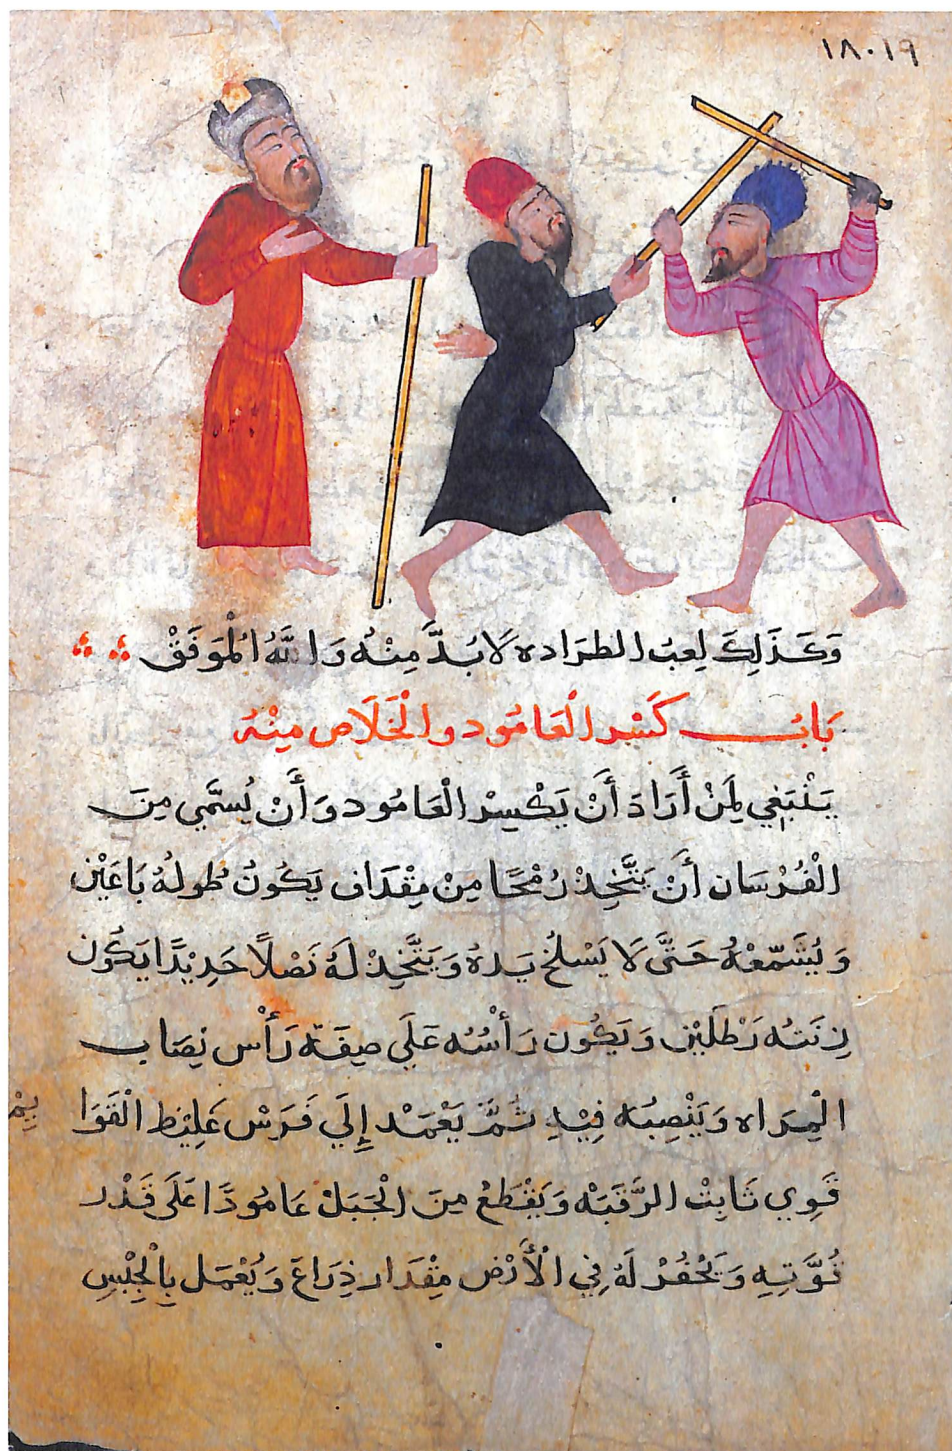 ١٨٠١٩
وَكَذَلِكَ لِعبُ الطرَاده لَابُدَّ مِنْهُ وَاللَّهُ الْمُوَفَقْ
بَابُ كَسْرِ الْعَامُود والْخَلَاص مِنْهُ
يَنْبَغِي لِمَنْ أَرَادَ أَنْ يَكْسِرْ الْعَامُود وَأَنْ يُسمَّي مِنَ
الْفُرْسَان أَنْ يَتَّخِذْ رُمْحًا مِنْ مِقْدَاف يَكُونُ طُولهُ بَاعَيْن
وَيُشَمّعْهُ حَتَّى لَا يَسْلخُ يَدهُ وَيَتَّخِذْ لَهُ نَصْلًا حَدِيْدًا يَكُون
زِنَتهُ رَطْلَيْن وَيَكُون رَأْسُه عَلَي صِفَة رَأْس نِصَاب
الْمِرَاه وَيَنْصِبُه فِيْهِ ثُمَّ يَعْمَد إِلَي فَرَسْ غَلِيْظ الْقَوَا
يِمْ
قَوِي ثَابِتْ الرَّقَبَهْ وَيَقْطَعْ مِنَ الْجَبَلْ عَامُودًا عَلَى قَدْر
قُوَّتِهِ وَيَحْفُرْ لَهُ فِي الْأَرْض مِقْدَار ذِرَاعَ وَيُعْمَل بِالْجِبْسِ